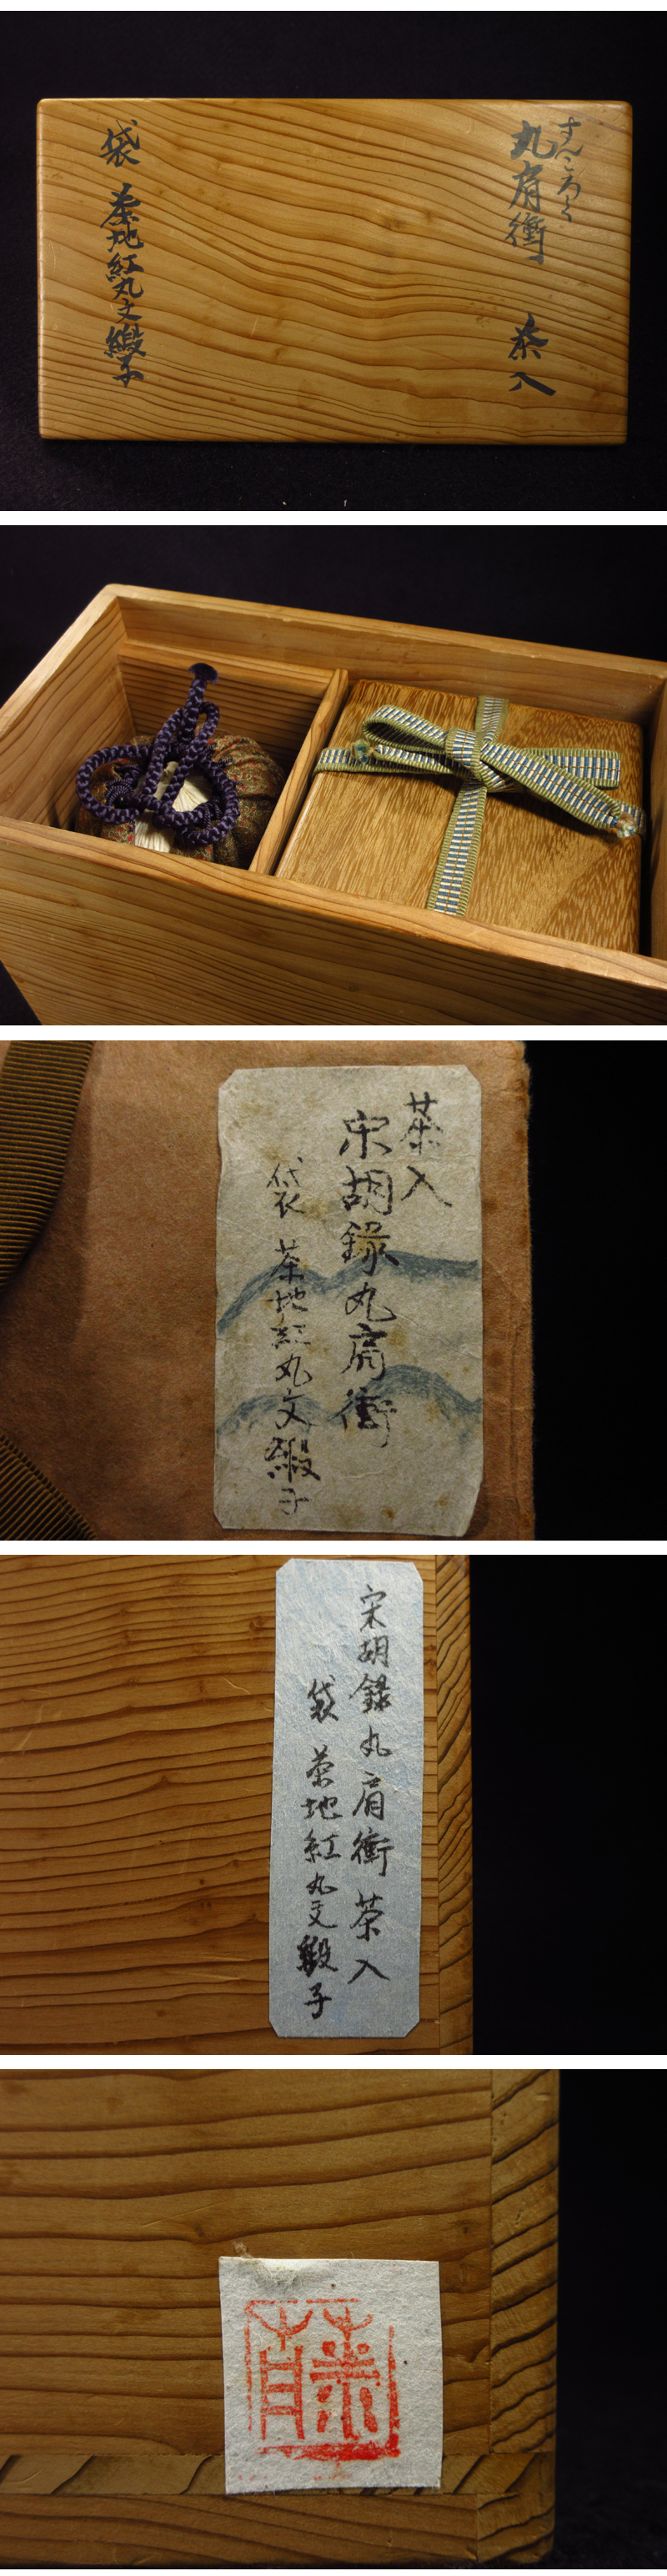 すんころく
丸肩衝 茶入
袋 茶地紅丸文緞子
茶入
宋胡録丸肩衝
袋 茶地紅丸文緞子
宋胡録丸肩衝 茶入
袋 茶地紅丸文緞子